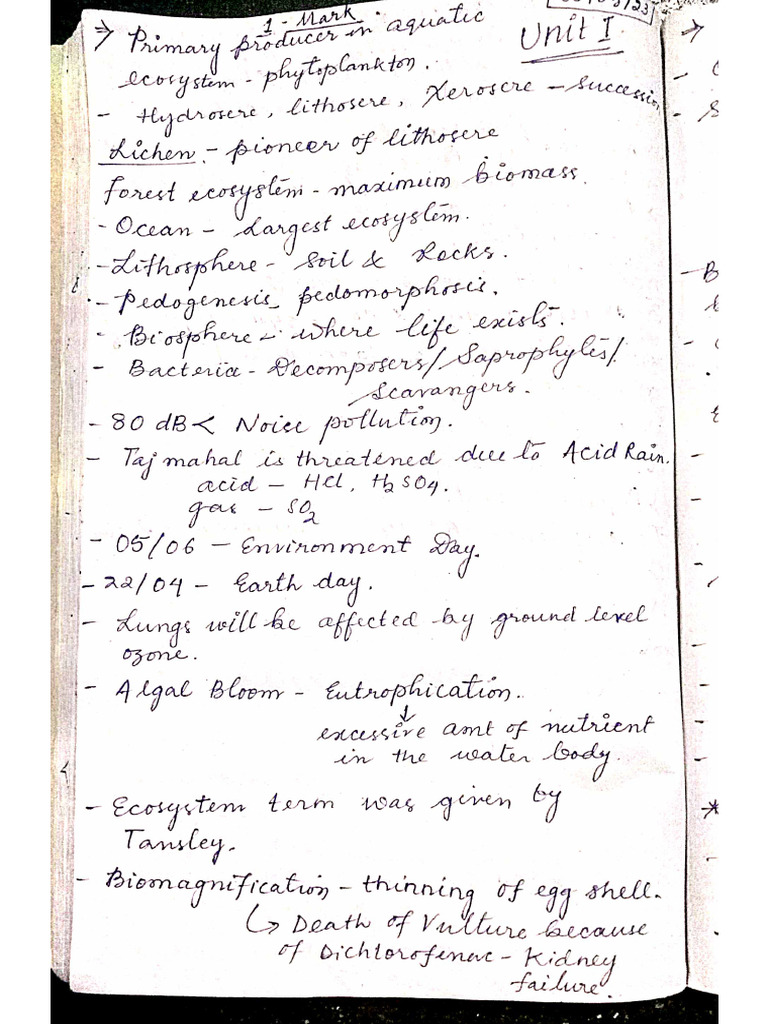 1 - Mark
→ Primary producer in aquatic
Unit I
ecosystem - phytoplankton.
- Hydrosere, lithosere, Xerosere - succession
Lichen - pioneer of lithosere
forest ecosystem - maximum biomass.
- Ocean - Largest ecosystem.
- Lithosphere - Soil & Rocks.
- Pedogenesis - pedomorphosis.
- Biosphere - where life exists.
- Bacteria - Decomposers/ Saprophytes/
Scavangers.
- 80 dB < Noise pollution.
- Taj mahal is threatened due to Acid Rain.
acid - Hcl, H2SO4.
gas - SO2
- 05/06 - Environment Day.
- 22/04 - Earth day.
- Lungs will be affected by ground level
ozone.
- Algal Bloom - Eutrophication.
↓
excessive amt of nutrient
in the water body.
- Ecosystem term was given by
Tansley.
- Biomagnification - thinning of egg shell.
↳ Death of Vulture because
of Dichlorofenac - Kidney
failure.